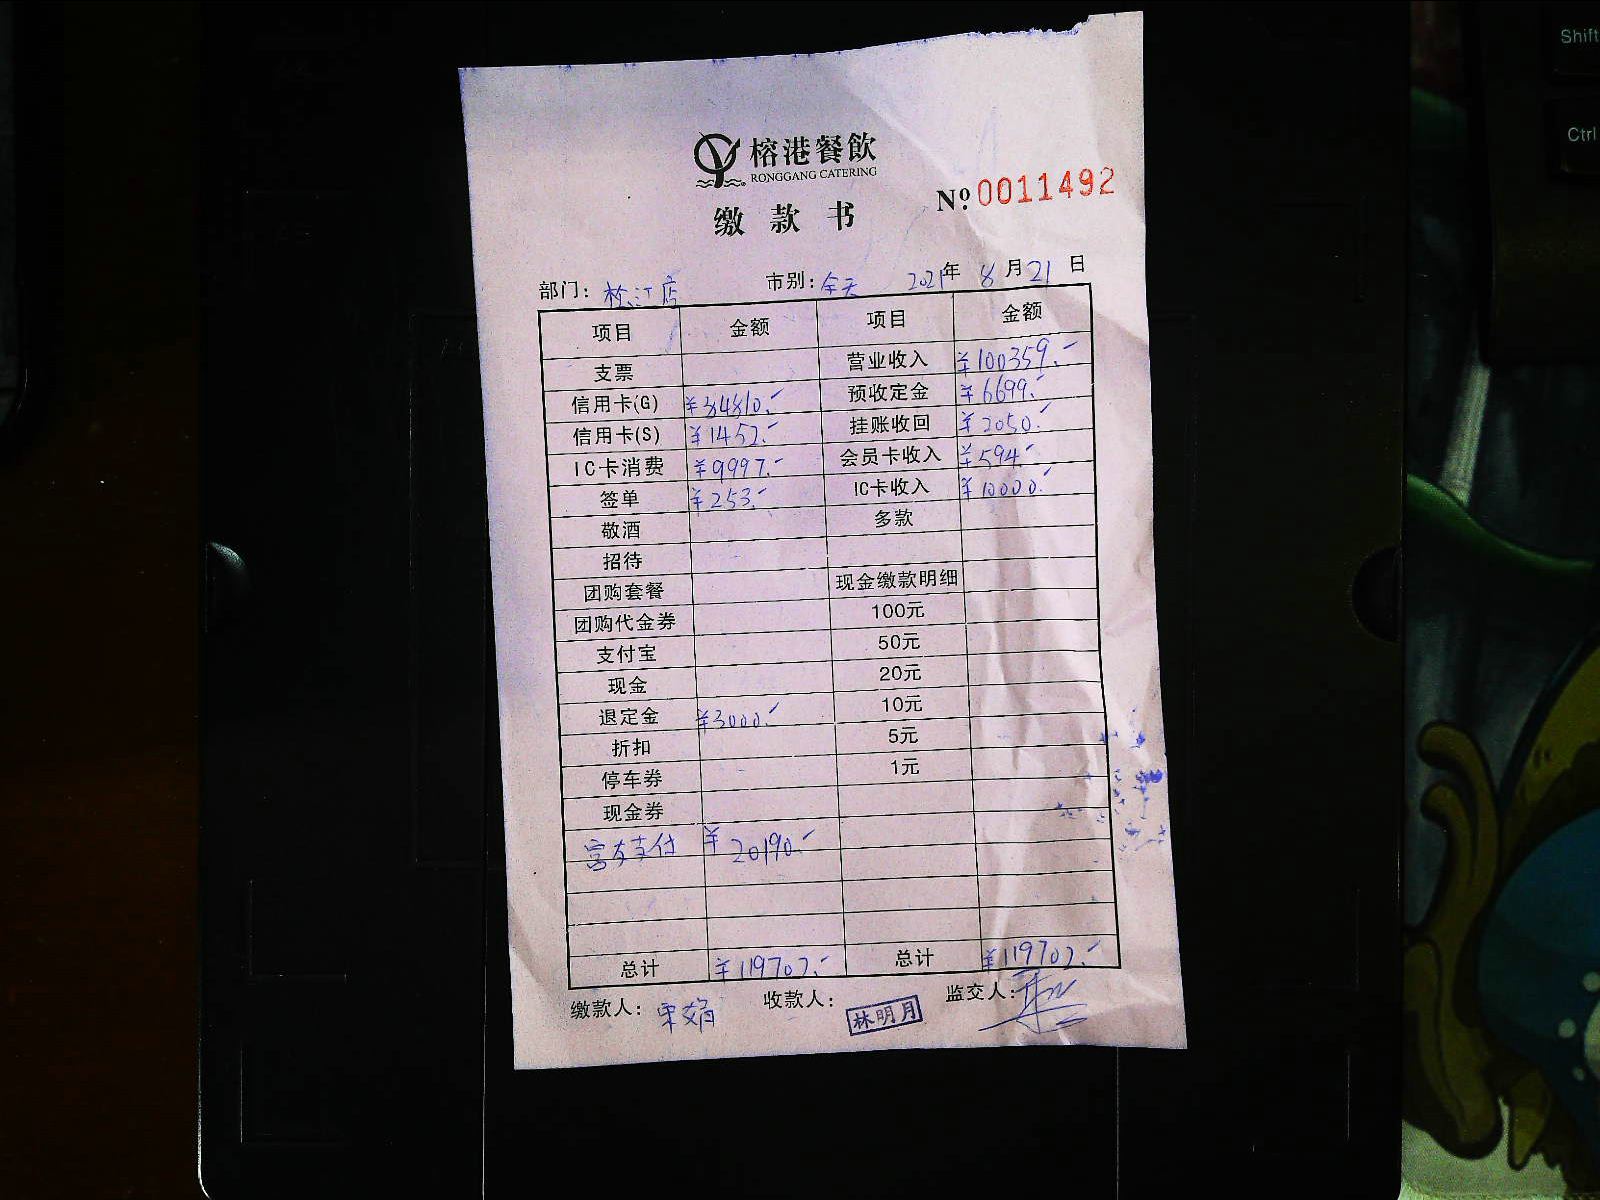 榕港餐飲
RONGGANG CATERING
缴款书
Nº 0011492
部门: 松江店 市别: 全天 2021年 8月21日
项目 金额 项目 金额
支票 营业收入 ¥100359.-
信用卡(G) ¥84810.- 预收定金 ¥6699.-
信用卡(S) ¥1452.- 挂账收回 ¥2050.-
IC卡消费 ¥9997.- 会员卡收入 ¥594.-
签单 ¥253.- IC卡收入 ¥10000.-
敬酒 多款
招待
团购套餐 现金缴款明细
团购代金券 100元
支付宝 50元
现金 20元
退定金 ¥3000.- 10元
折扣 5元
停车券 1元
现金券
富友支付 ¥20190.-
总计 ¥119702.- 总计 ¥119702.-
缴款人: 收款人: 林明月 监交人:
Shift
Ctrl